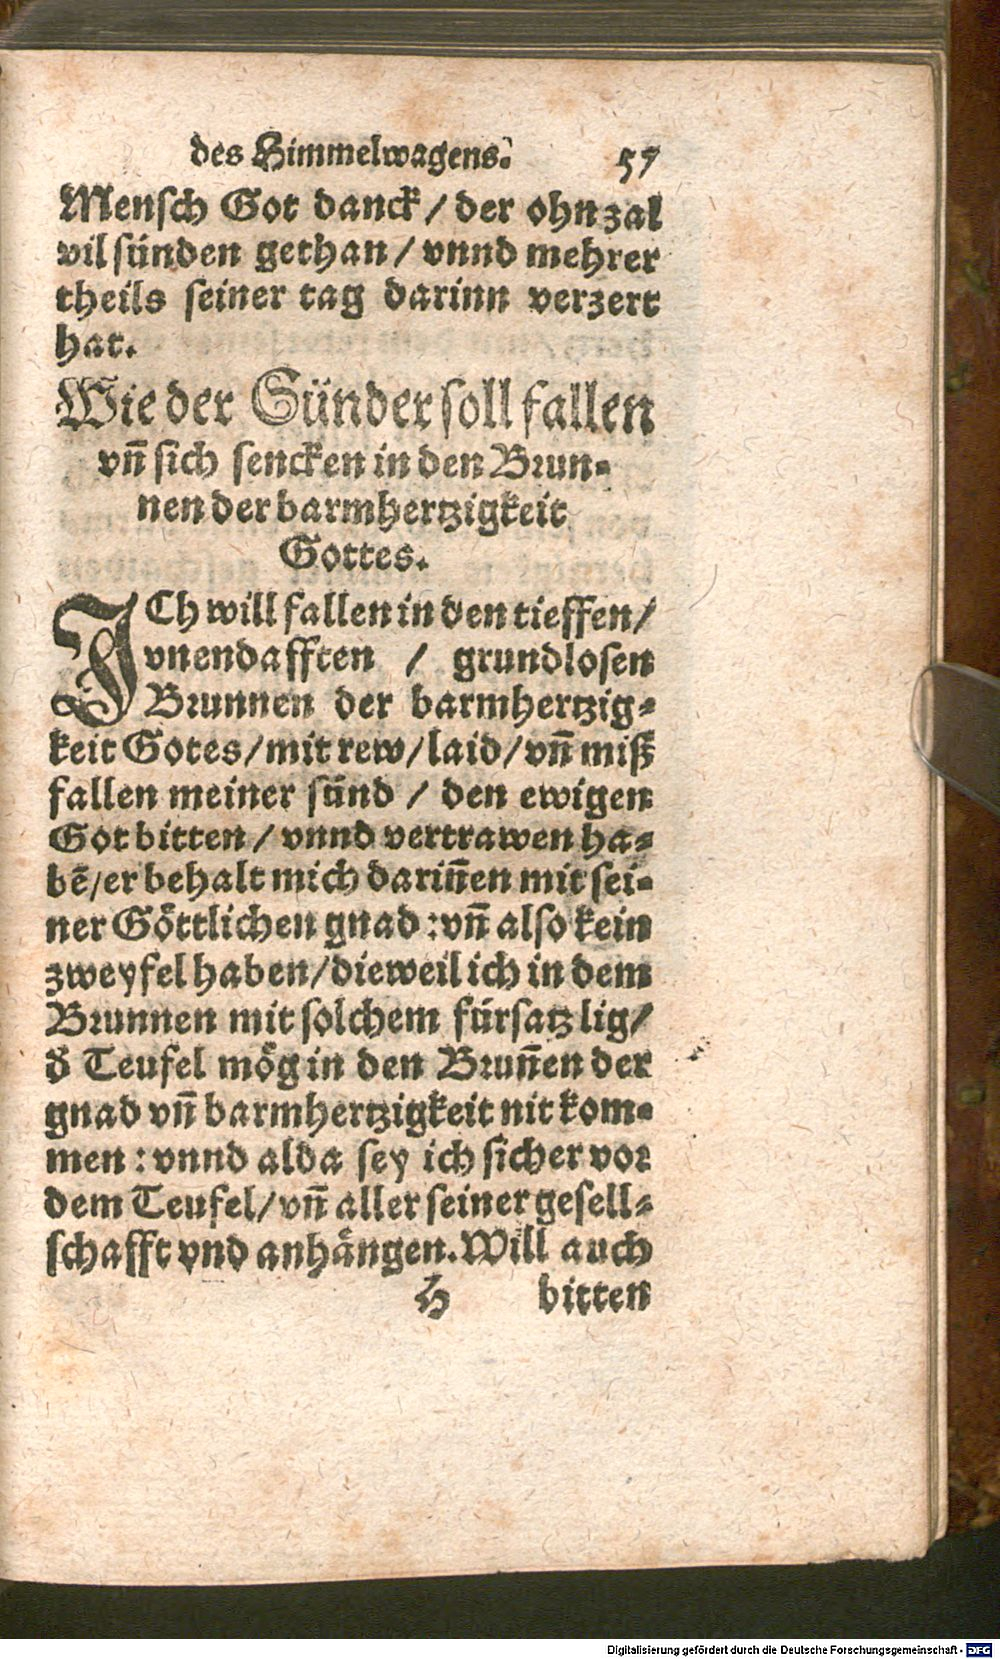 des Himmelwagens. 57
Mensch Got danck / der ohn zal
vil sünden gethan / vnnd mehrer
theils seiner tag darinn verzert
hat.
Wie der Sünder soll fallen
vn̄ sich sencken in den Brun-
nen der barmhertzigkeit
Gottes.
ICh will fallen in den tieffen /
vnendafften / grundlosen
Brunnen der barmhertzig-
keit Gotes / mit rew / laid / vn̄ miß
fallen meiner sünd / den ewigen
Got bitten / vnnd vertrawen ha-
bē / er behalt mich darin̄en mit sei-
ner Göttlichen gnad : vn̄ also kein
zweyfel haben / dieweil ich in dem
Brunnen mit solchem fürsatz lig /
d̕ Teufel mög in den Brun̄en der
gnad vn̄ barmhertzigkeit nit kom-
men : vnnd alda sey ich sicher vor
dem Teufel / vn̄ aller seiner gesell-
schafft vnd anhängen. Will auch
H bitten
Digitalisierung gefördert durch die Deutsche Forschungsgemeinschaft - DFG